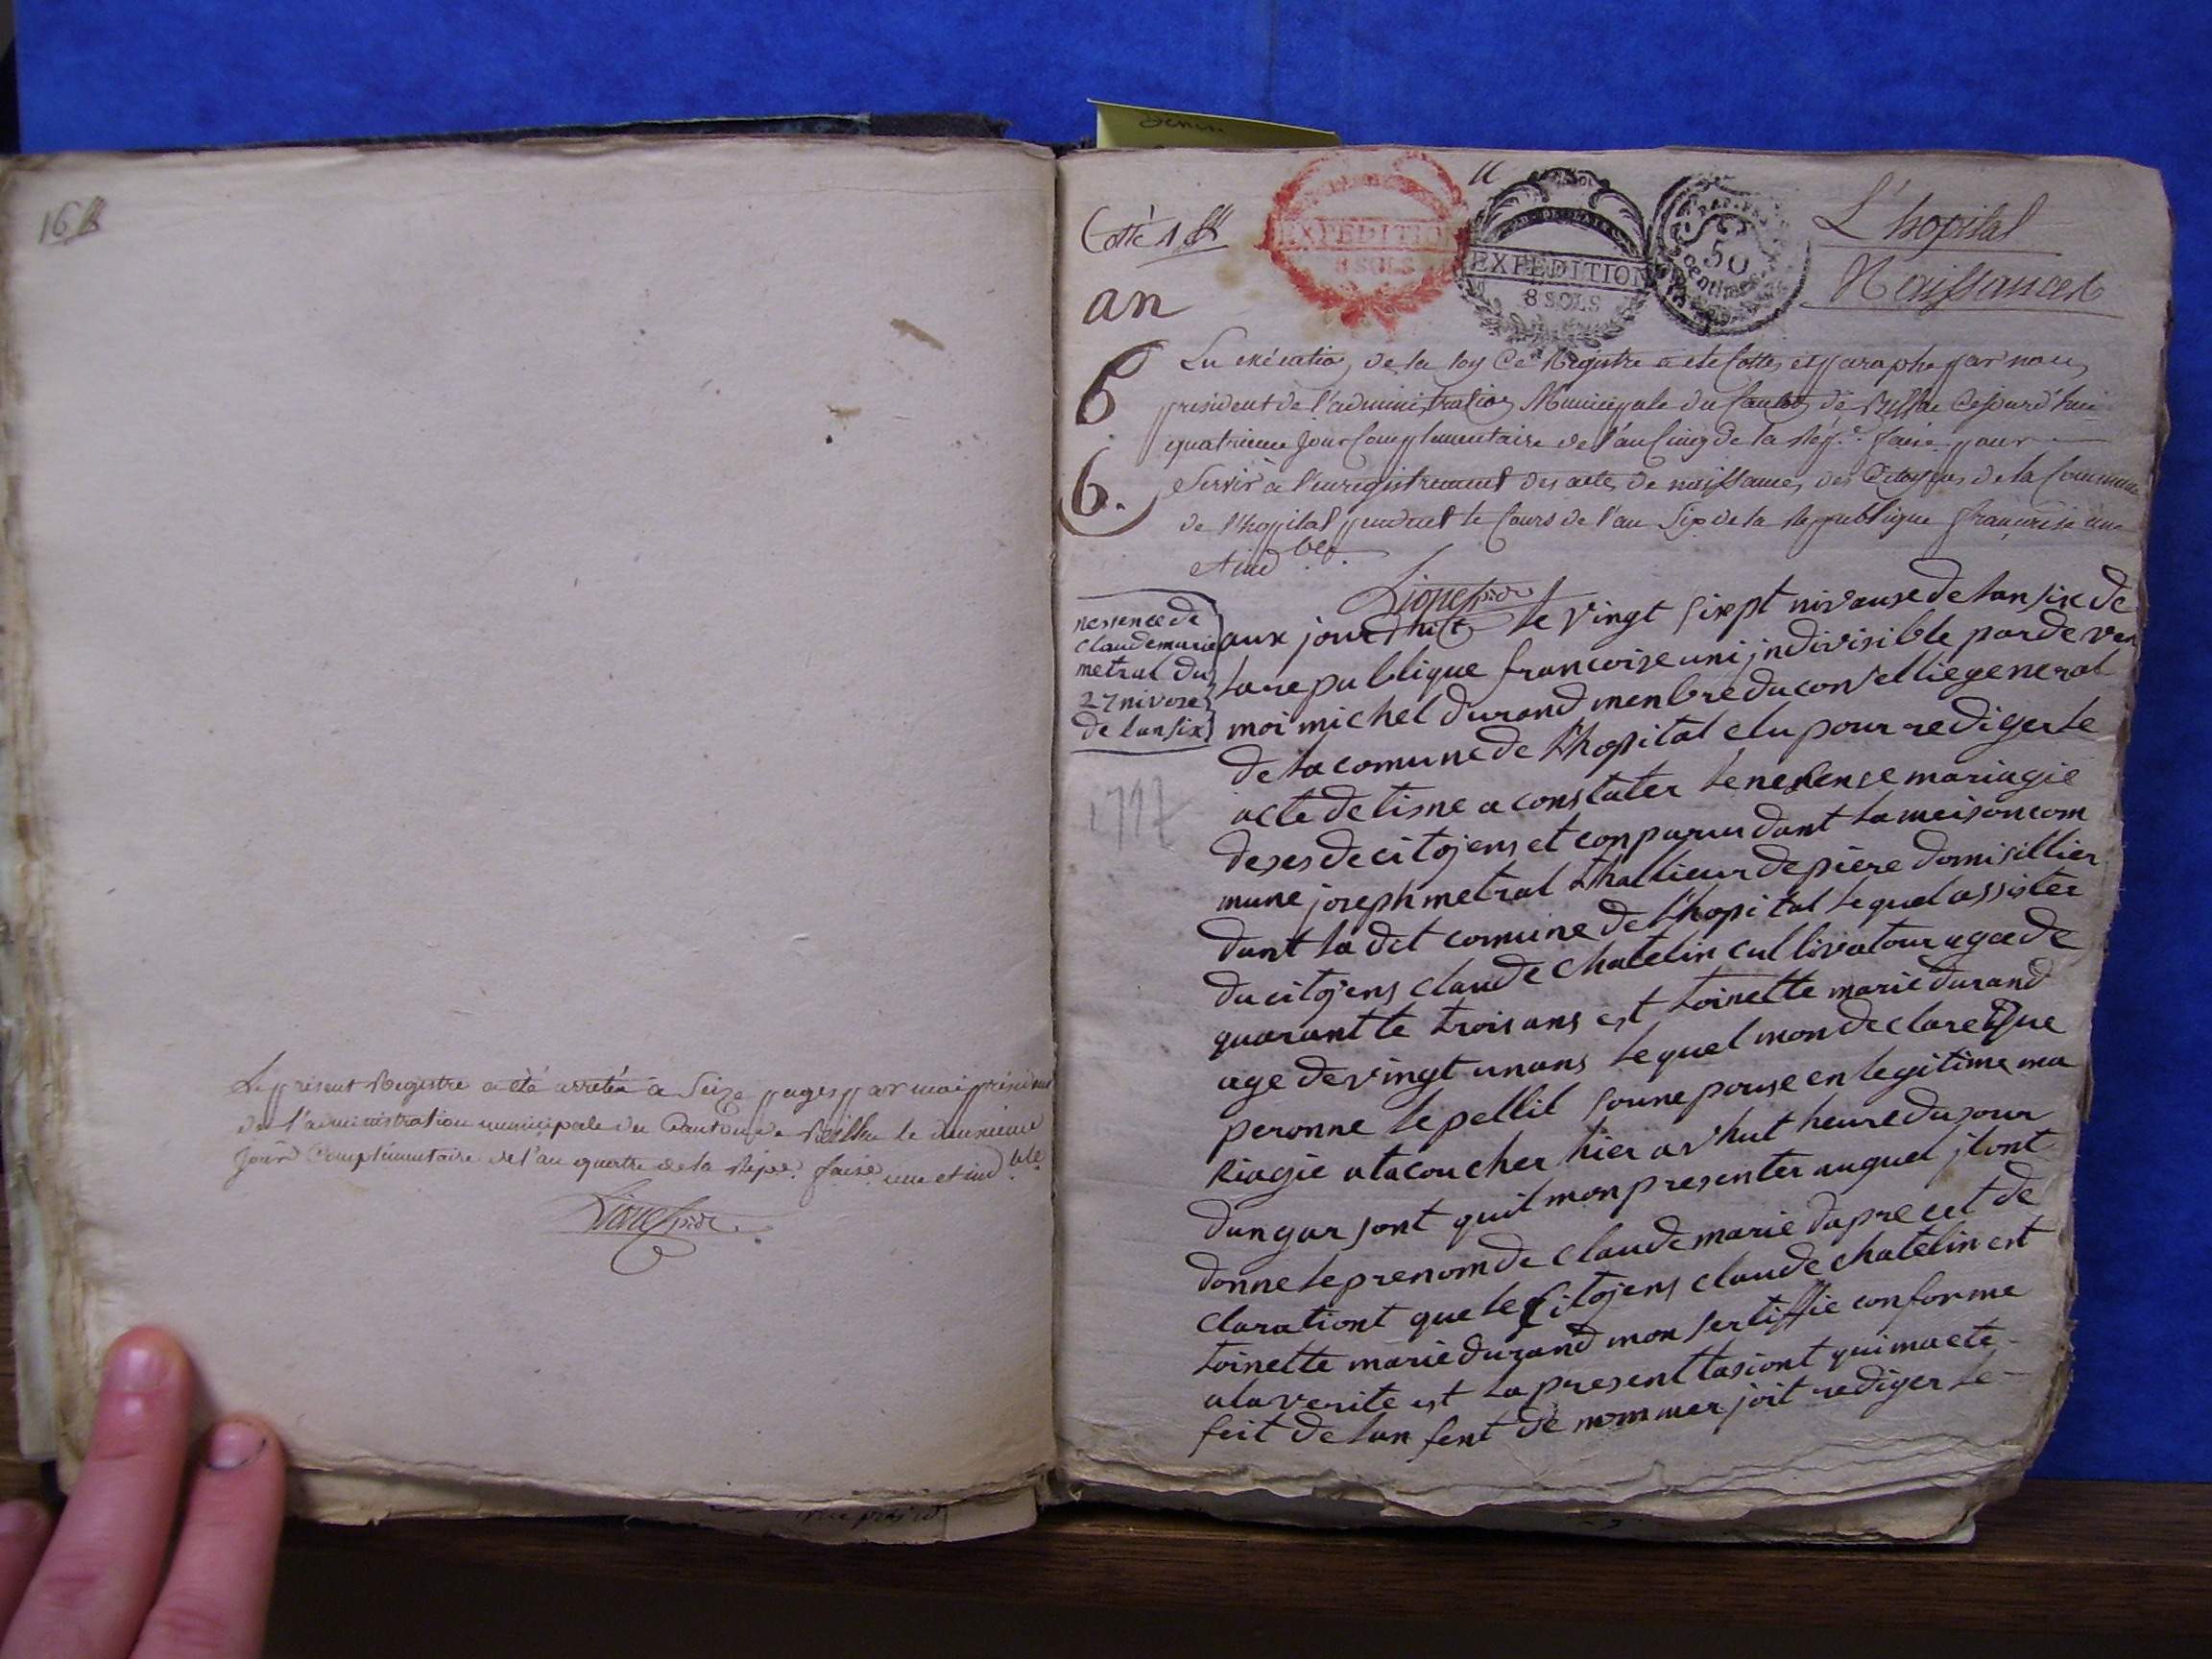 16
Le present Registre a été arretée à Seize pages par moi président
de l'administration municipale du Canton de Billia le deuxieme
jour Complimentaire de l'an quatre de la Répe. faise une et indble
Cotté 1
EXPEDITION
8 SOLS
EXPEDITION
8 SOLS
50
centimes
L'hopital
Naissances
an
6
6.
En exécution de la loy Ce Registre a été Cotté et paraphé par nous
président de l'administration Municipale du Canton de Billia Cejourd'hui
quatrieme Jour Complementaire de l'an Cinq de la Rép.e faise pour
Servir a l'enregistrement des actes de naissances des Citoyens de la Commune
de l'hopital pendant le Cours de l'an Six de la Republique française une
et ind ble
nessence de
claude marie
metral du
27 nivose
de lan six
1797
aux jourdhuit le vingt sixpt nivause de lan six de
la republique francoise uni jndivisible par de ven
moi michel durand menbre du conselliegeneral
de la comune de l'hopital elu pour rediger le
acte de tisne a constater le nesense mariagie
deses de citojens et conparu dant la meison com
mune joseph metral thallieur de piere domisillier
dant la dit comune de l'hopital lequel assister
du citojens claude chatelin cullivatour agee de
quarantte trois ans est toinette marie durand
age de vingt un ans lequel mon declare que
peronne le pellit son nepouse en legitime ma
riagie a tacoucher hier a v'hut heure du jour
dun garsont quil mon presenter auquel jlont
donne le prenom de claude marie dapre cet de
clarationt que le citojens claude chatelin est
toinette marie durand mon sertiffie conforme
a la verite est la presenttasiont qui ma ete
feit de lan fent de nommer joit rediger le